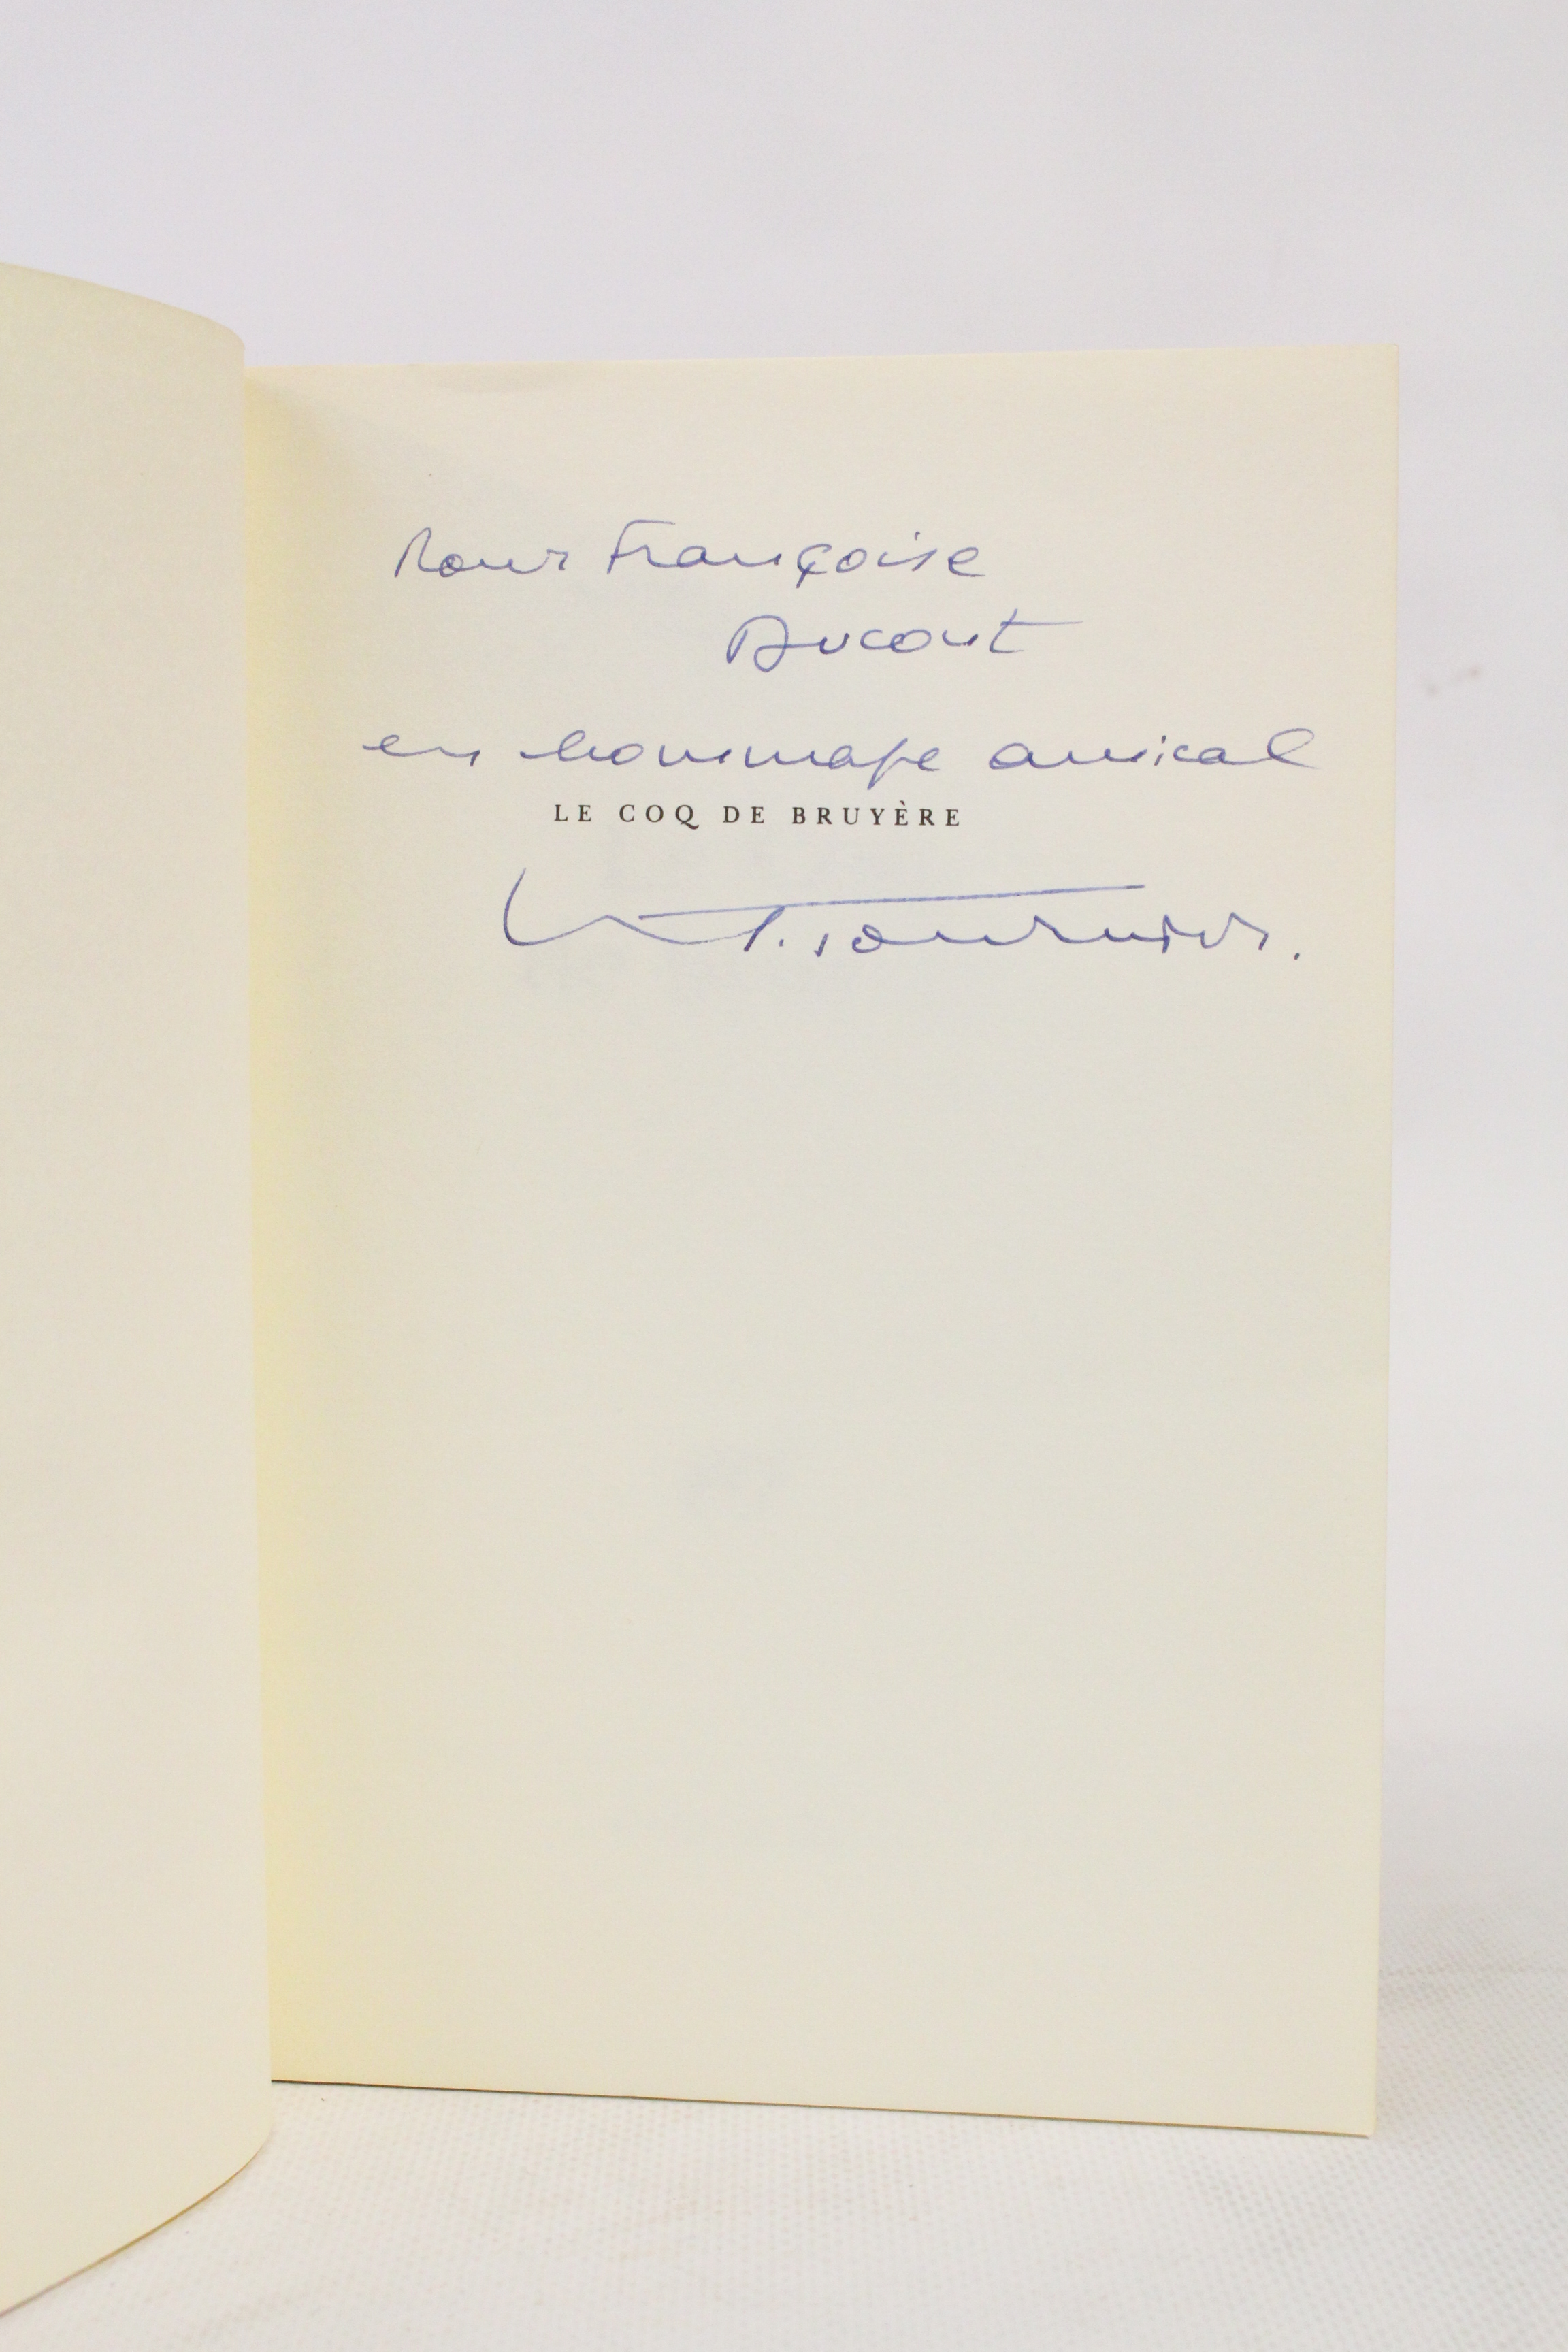 Pour Françoise
Ducout
en hommage amical
LE COQ DE BRUYÈRE
M. Tournier.